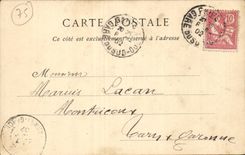 75
CARTE POSTALE
Ce côté est exclusivement réservé à l'adresse
Monsieur
Marius Lacan
Montricoux
Tarn & Garonne